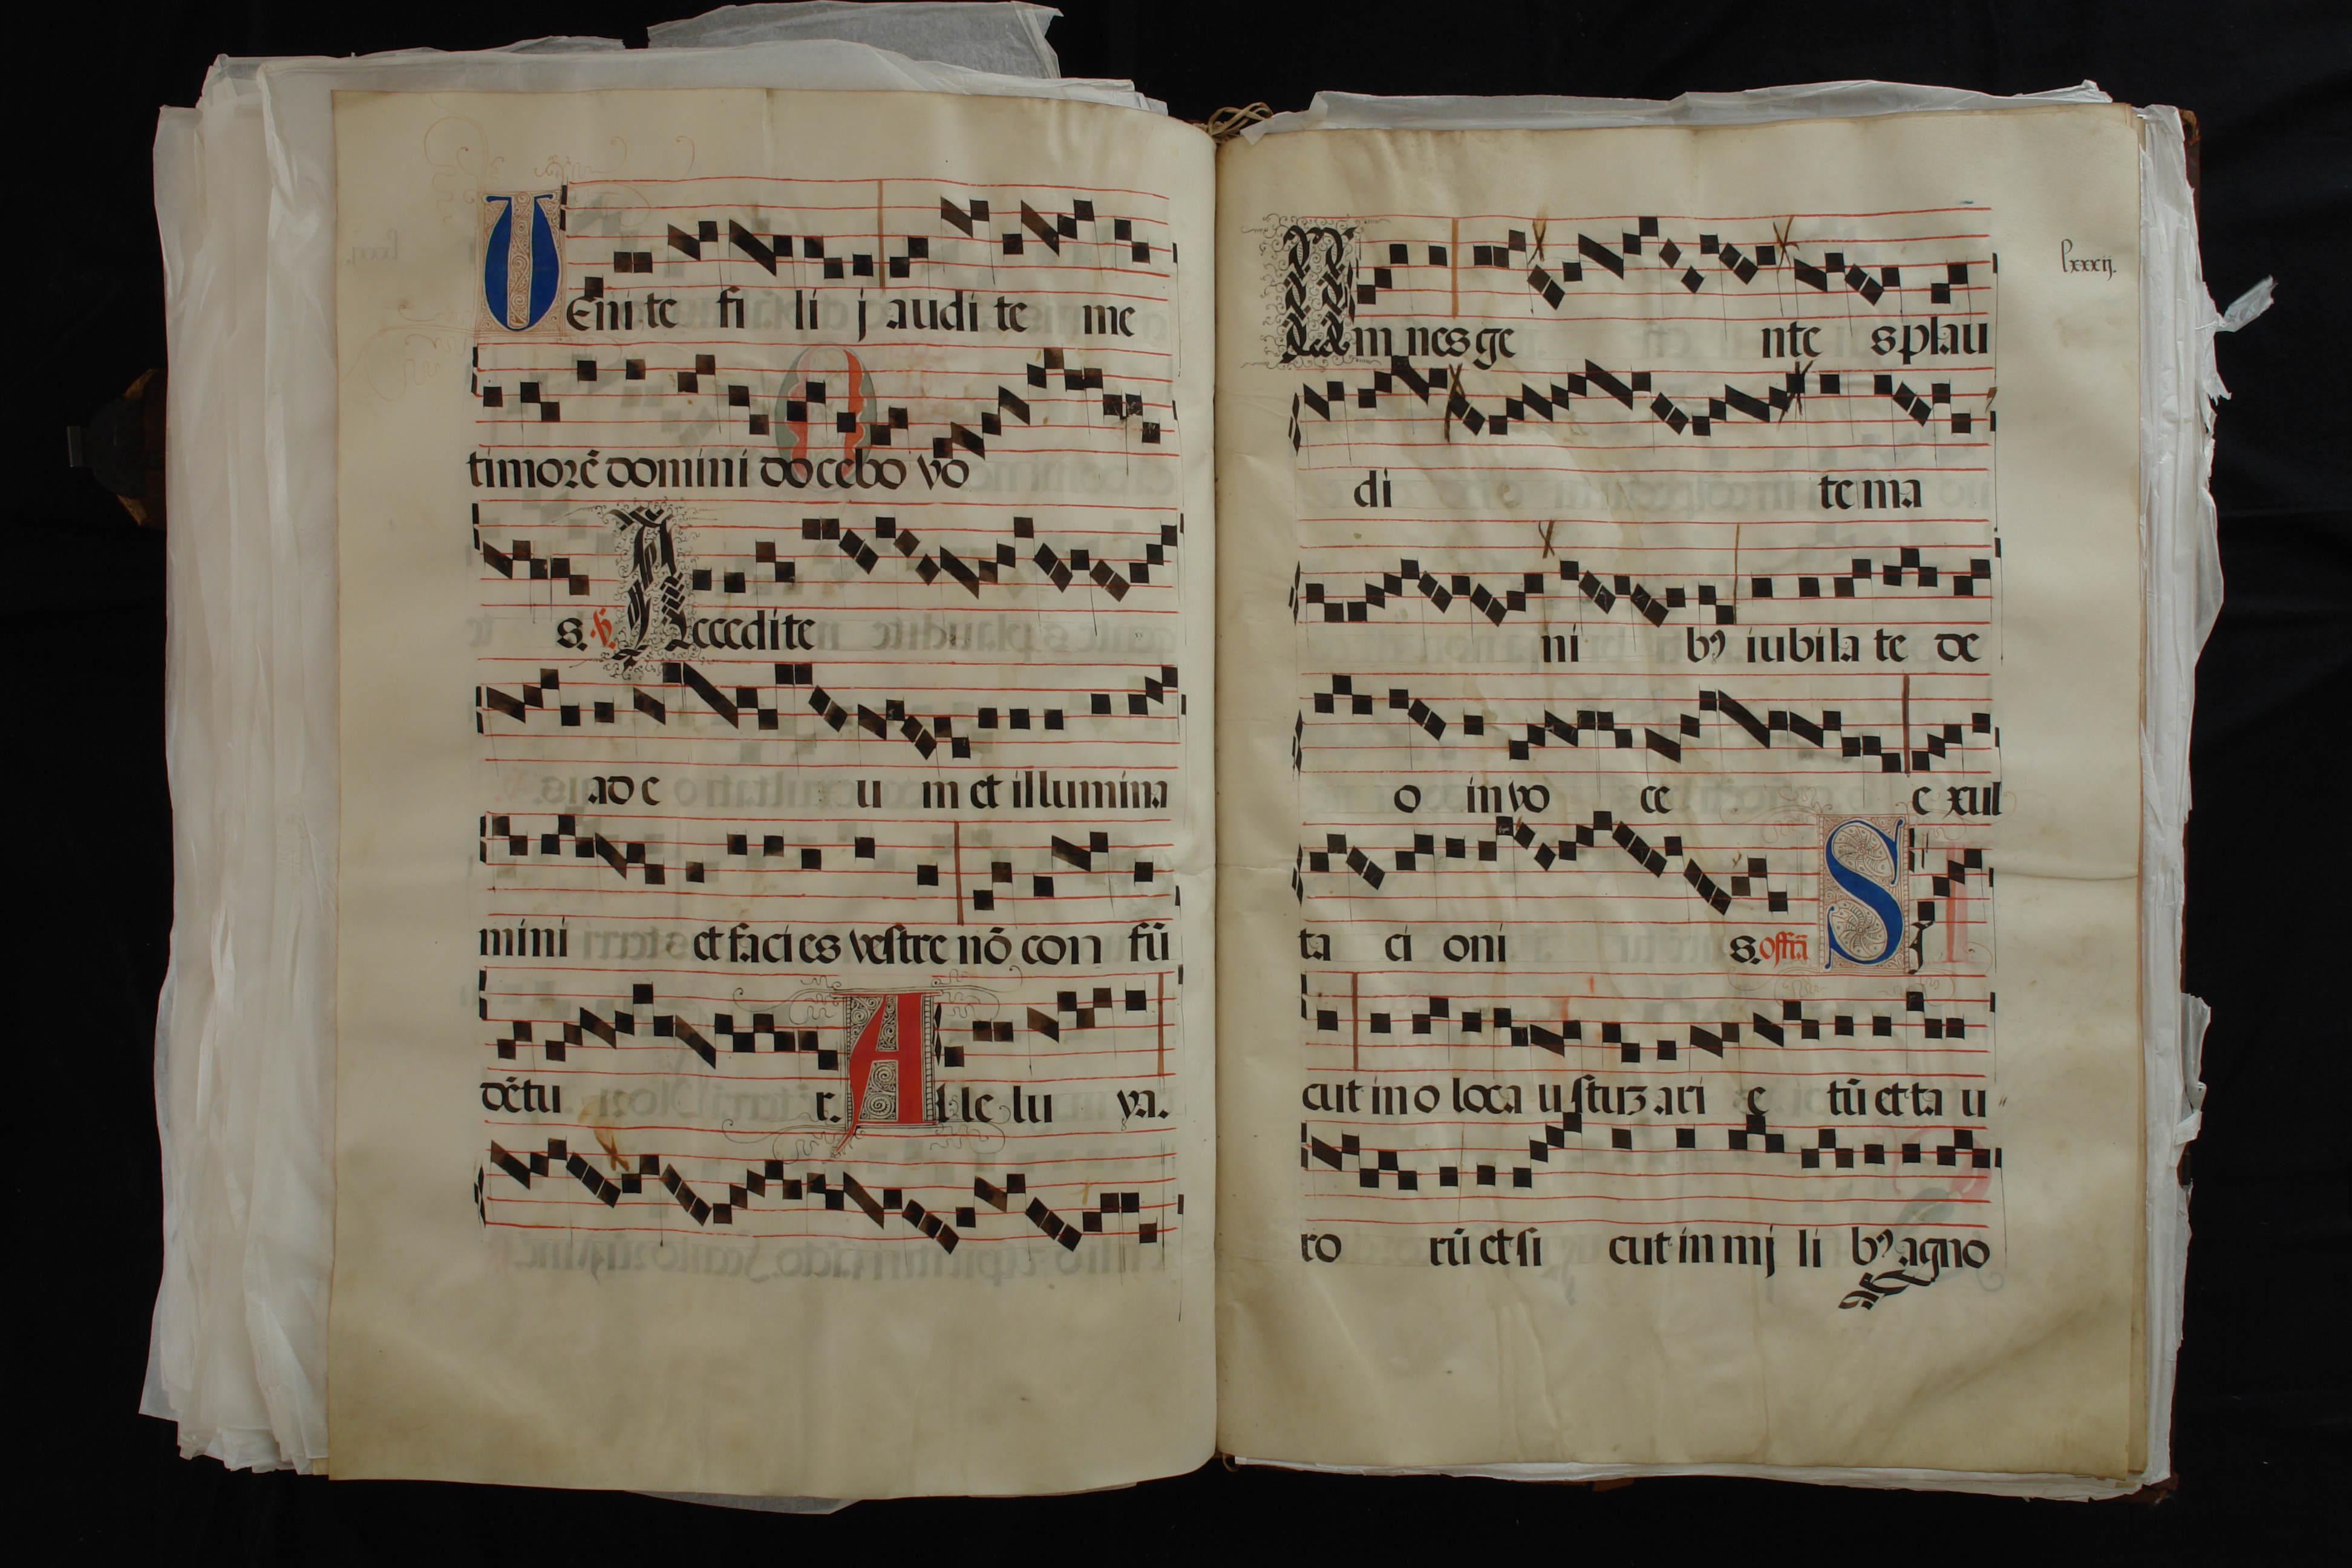 VEni te fi li j audi te me
timorē domini docebo vo
s. ℣. Accedite
ad e u m et illumina
mini et faci es vestre nō con fū
dētu r. Al le lu ya.
lxxxij.
Om nes ge nte s plau
di te ma
ni bꝰ iubila te de
o in vo ce e xul
ta ci oni s. offr̄a Si
cut in o loca ustuʒ ari e tū et ta u
ro rū et si cut in mj li bꝰ agno